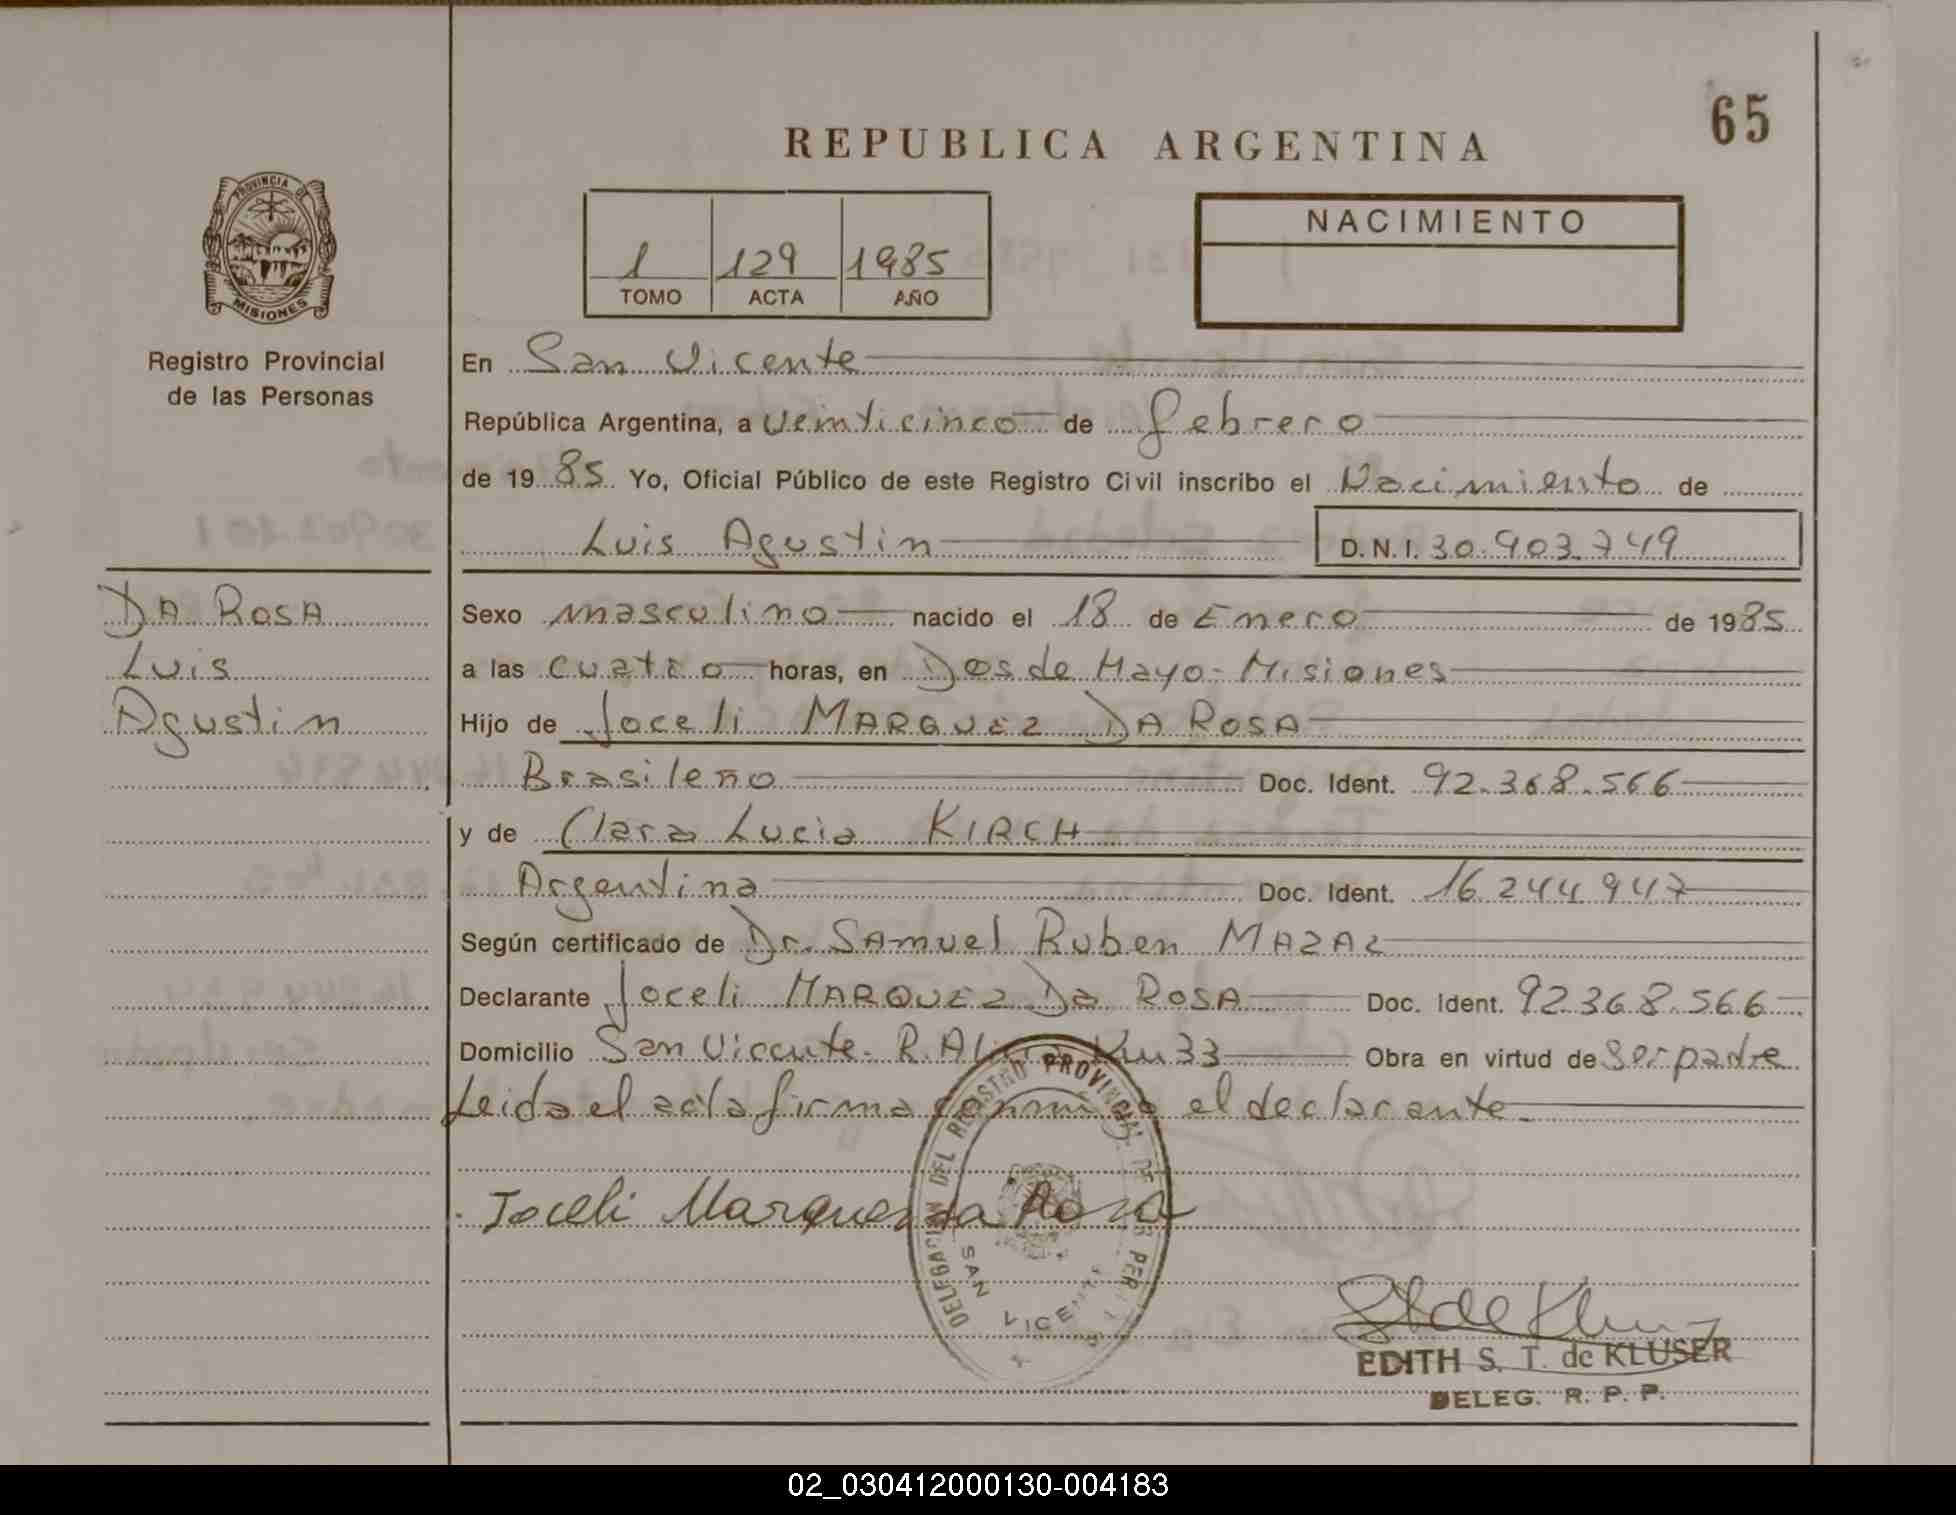 65
REPUBLICA ARGENTINA
PROVINCIA DE
MISIONES
Registro Provincial
de las Personas
1 129 1985
TOMO ACTA AÑO
NACIMIENTO
En San Vicente
República Argentina, a veinticinco de febrero
de 1985 Yo, Oficial Público de este Registro Civil inscribo el Nacimiento de
Luis Agustin D.N.I. 30.903.749
DA ROSA
Luis
Agustin
Sexo masculino nacido el 18 de Enero de 1985
a las cuatro horas, en Dos de Mayo - Misiones
Hijo de Joceli MARQUEZ DA ROSA
Brasileño Doc. Ident. 92.368.566
y de Clara Lucia KIRCH
Argentina Doc. Ident. 16.244.947
Según certificado de Dr. SAmuel Ruben MAZAL
Declarante Joceli MARQUEZ Da ROSA Doc. Ident. 92.368.566
Domicilio San Vicente - R. Alicia Km 33 Obra en virtud de ser padre
Leida el acta firma conmigo el declarante
Joceli Marques da Rosa
DELEGACION DEL REGISTRO PROVINCIAL DE LAS PER
SAN VICENTE
EDITH S. T. de KLUSER
DELEG. R. P. P.
02_030412000130-004183